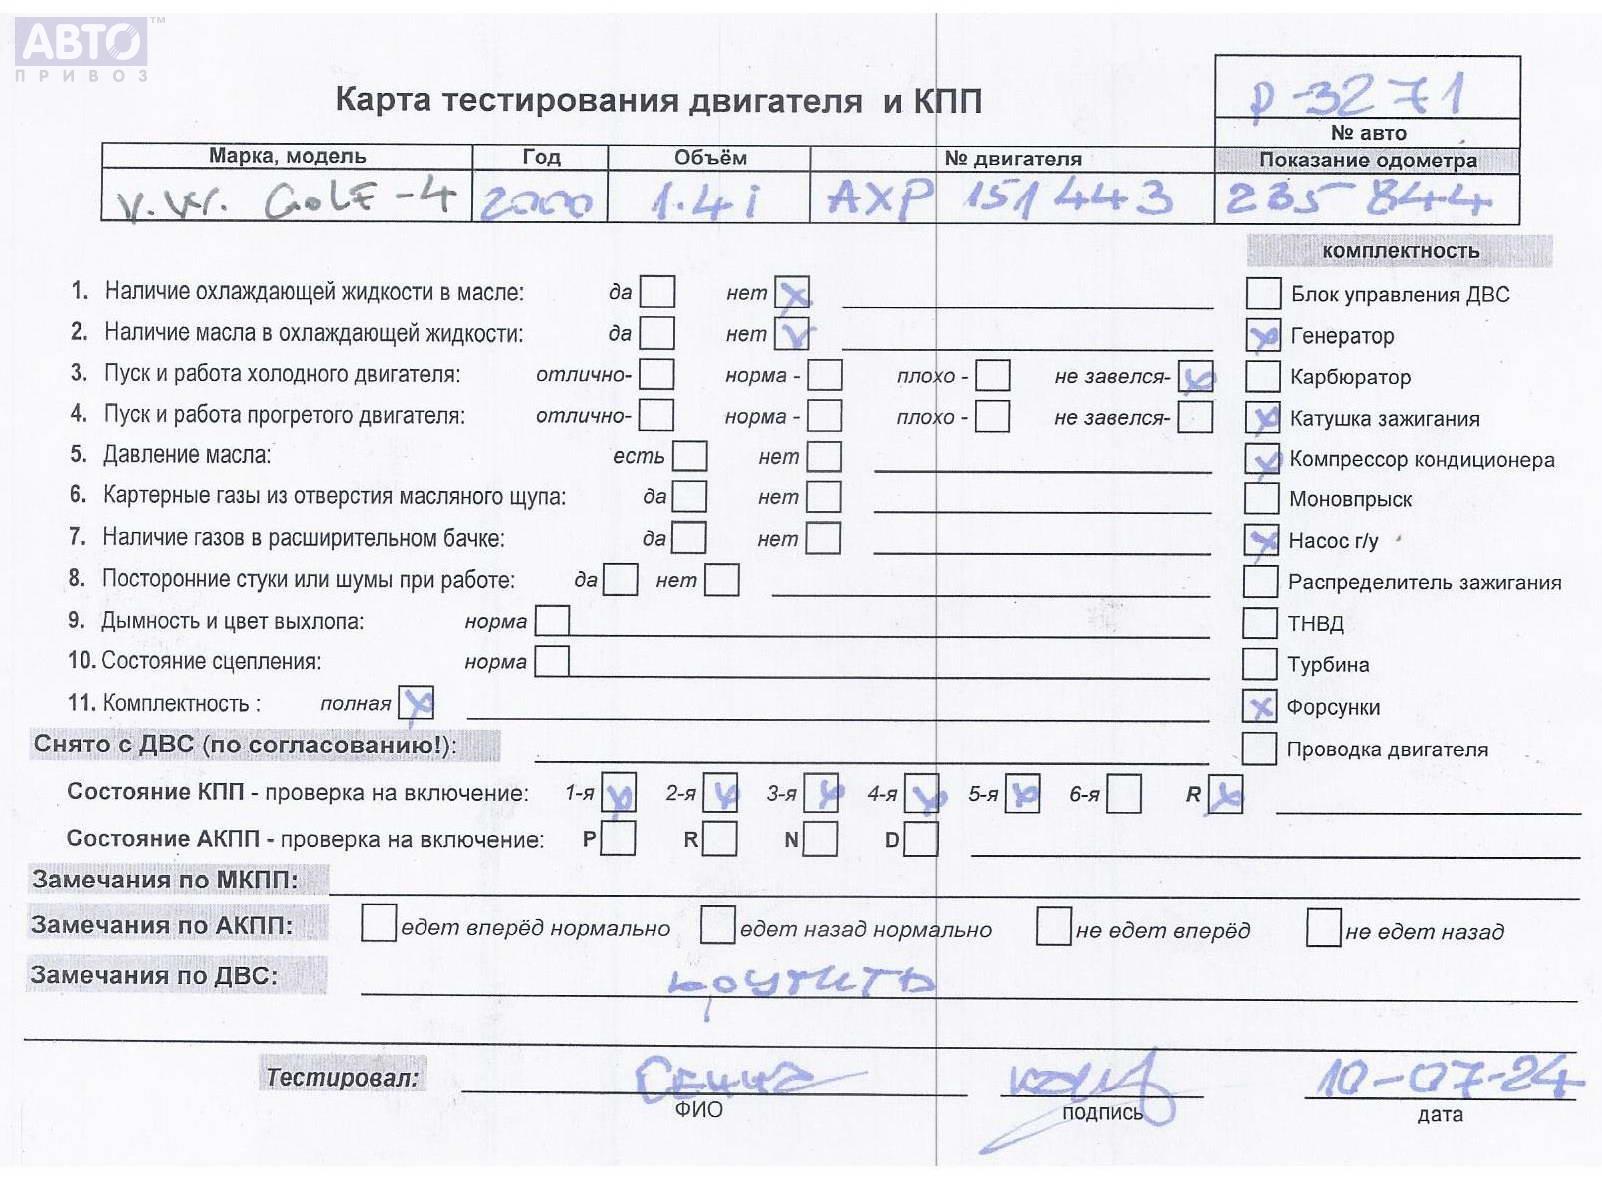 АВТО™
ПРИВОЗ
Карта тестирования двигателя и КПП
р-3271
№ авто
Марка, модель Год Объём № двигателя Показание одометра
V.W. GOLF-4 2000 1.4i AXP 151443 235 844
комплектность
1. Наличие охлаждающей жидкости в масле: да нет x Блок управления ДВС
2. Наличие масла в охлаждающей жидкости: да нет v x Генератор
3. Пуск и работа холодного двигателя: отлично- норма - плохо - не завелся- x Карбюратор
4. Пуск и работа прогретого двигателя: отлично- норма - плохо - не завелся- x Катушка зажигания
5. Давление масла: есть нет x Компрессор кондиционера
6. Картерные газы из отверстия масляного щупа: да нет Моновпрыск
7. Наличие газов в расширительном бачке: да нет x Насос г/у
8. Посторонние стуки или шумы при работе: да нет Распределитель зажигания
9. Дымность и цвет выхлопа: норма ТНВД
10. Состояние сцепления: норма Турбина
11. Комплектность : полная x x Форсунки
Снято с ДВС (по согласованию!): Проводка двигателя
Состояние КПП - проверка на включение: 1-я x 2-я x 3-я x 4-я x 5-я x 6-я R x
Состояние АКПП - проверка на включение: P R N D
Замечания по МКПП:
Замечания по АКПП: едет вперёд нормально едет назад нормально не едет вперёд не едет назад
Замечания по ДВС: крутить
Тестировал: 10-07-24
ФИО подпись дата